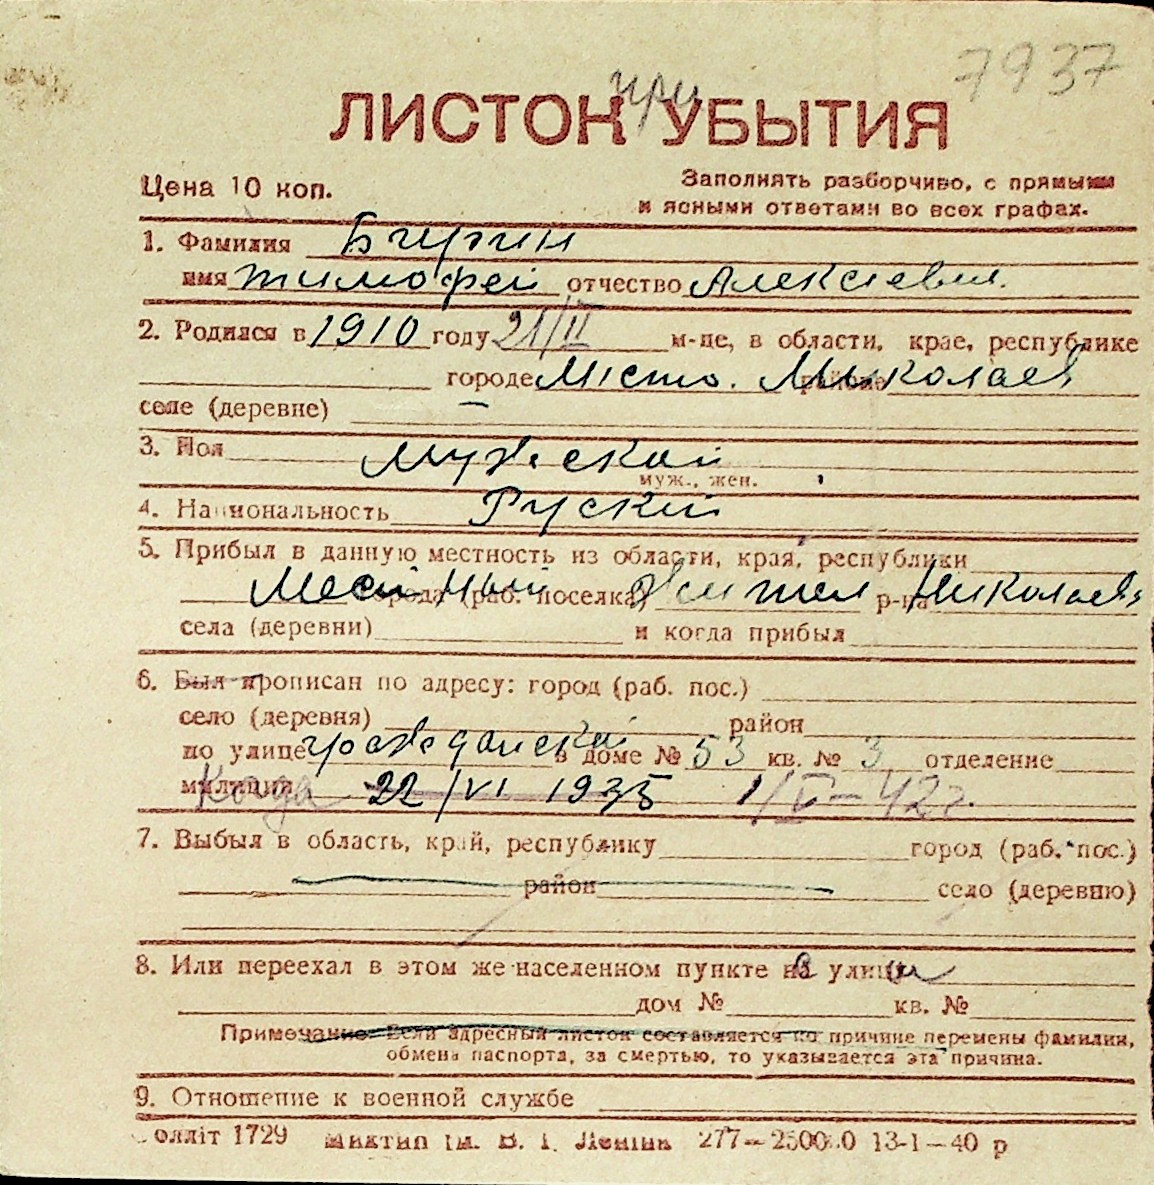 7937
при
ЛИСТОК УБЫТИЯ
Цена 10 коп.
Заполнять разборчиво, с прямыми
и ясными ответами во всех графах.
1. Фамилия
имя Тимофей отчество Алексіевич
2. Родился в 1910 году 21/II м-це, в области, крае, республике
городе Місто. районе Миколаев
селе (деревне) –
3. Пол Мужской
муж., жен.
4. Национальность Руский
5. Прибыл в данную местность из области, края, республики
Местный города (раб. поселка) жител р-на Николаев
села (деревни) и когда прибыл
6. Был прописан по адресу: город (раб. пос.)
село (деревня) район
по улице гражданской в доме № 53 кв. № 3 отделение
милиции Когда 22/VI 1935 1/V-42г.
7. Выбыл в область, край, республику город (раб. пос.)
район село (деревню)
8. Или переехал в этом же населенном пункте на улицу
дом № кв. №
Примечание: Если адресный листок составляется по причине перемены фамилии,
обмена паспорта, за смертью, то указывается эта причина.
9. Отношение к военной службе
олліт 1729 ім. В. І. Леніна 277— 13-1—40 р